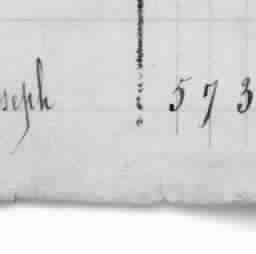 seph 5 7 3